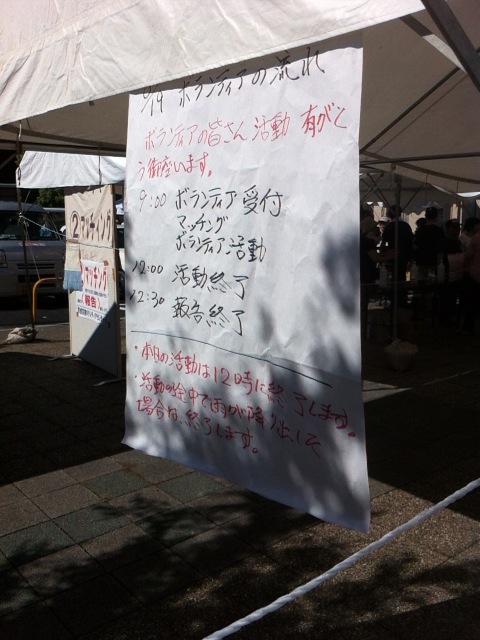 /19 ボランティアの流れ
ボランティアの皆さん 活動 有がと
う御座います。
9:00 ボランティア受付
マッチング
ボランティア活動
12:00 活動終了
12:30 報告終了
・本日の活動は12時に終了します。
・活動の途中で雨が降り出して
場合は、終了します。
②マッチング
マッチング
報告